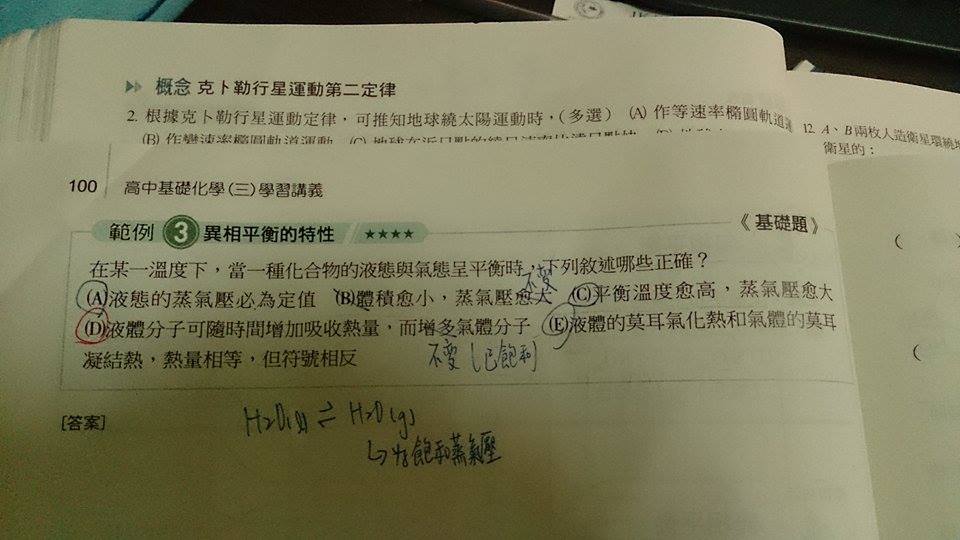 概念 克卜勒行星運動第二定律
2. 根據克卜勒行星運動定律，可推知地球繞太陽運動時，(多選) (A) 作等速率橢圓軌道運
12. A、B兩枚人造衛星環繞地
(B) 作變速率橢圓軌道運動 (C)
衛星的：
100 高中基礎化學(三)學習講義
範例 3 異相平衡的特性 ★★★★
《基礎題》
在某一溫度下，當一種化合物的液態與氣態呈平衡時，下列敘述哪些正確？
不變
(A)液態的蒸氣壓必為定值 (B)體積愈小，蒸氣壓愈大 (C)平衡溫度愈高，蒸氣壓愈大
(D)液體分子可隨時間增加吸收熱量，而增多氣體分子 (E)液體的莫耳氣化熱和氣體的莫耳
凝結熱，熱量相等，但符號相反
不變 (已飽和)
[答案]
H2O(l) ⇌ H2O(g)
↳為飽和蒸氣壓